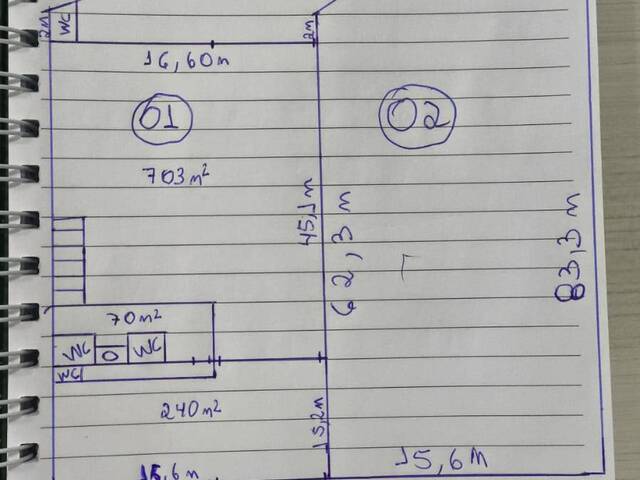 2m
WC
2m
16,60m
01
02
703m²
45,1m
62,3 m
83,3 m
70m²
WC
O
WC
WC
240m²
15,2m
15,6m
15,6M